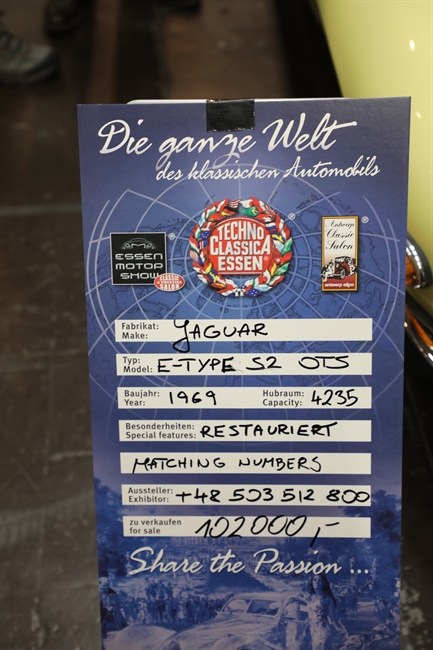 Die ganze Welt
des klassischen Automobils
ESSEN
MOTOR
SHOW
CLASSIC
& PRESTIGE
SALON
TECHNO
CLASSICA
ESSEN
Antwerp
Classic
Salon
antwerp expo
Fabrikat:
Make: JAGUAR
Typ:
Model: E-TYPE S2 OTS
Baujahr: Hubraum:
Year: 1969 Capacity: 4235
Besonderheiten:
Special features: RESTAURIERT
MATCHING NUMBERS
Aussteller:
Exhibitor: +48 503 512 800
zu verkaufen
for sale 102000,-
Share the Passion ...